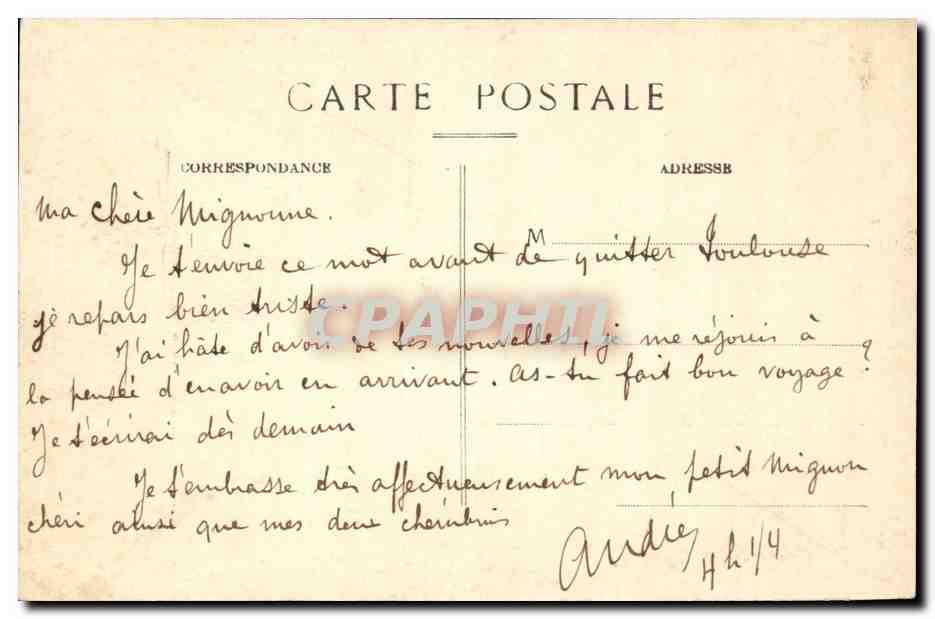 CARTE POSTALE
CORRESPONDANCE
ADRESSE
Ma chère Mignonne.
M
Je t'envoie ce mot avant de quitter Toulouse
je repars bien triste.
CPAPHIL
J'ai hâte d'avoir de tes nouvelles, je me réjouis à
la pensée d'en avoir en arrivant. As-tu fait bon voyage?
Je t'écrirai dès demain
Je t'embrasse très affectueusement mon petit Mignon
chéri ainsi que mes deux chérubins
André
4h 1/4